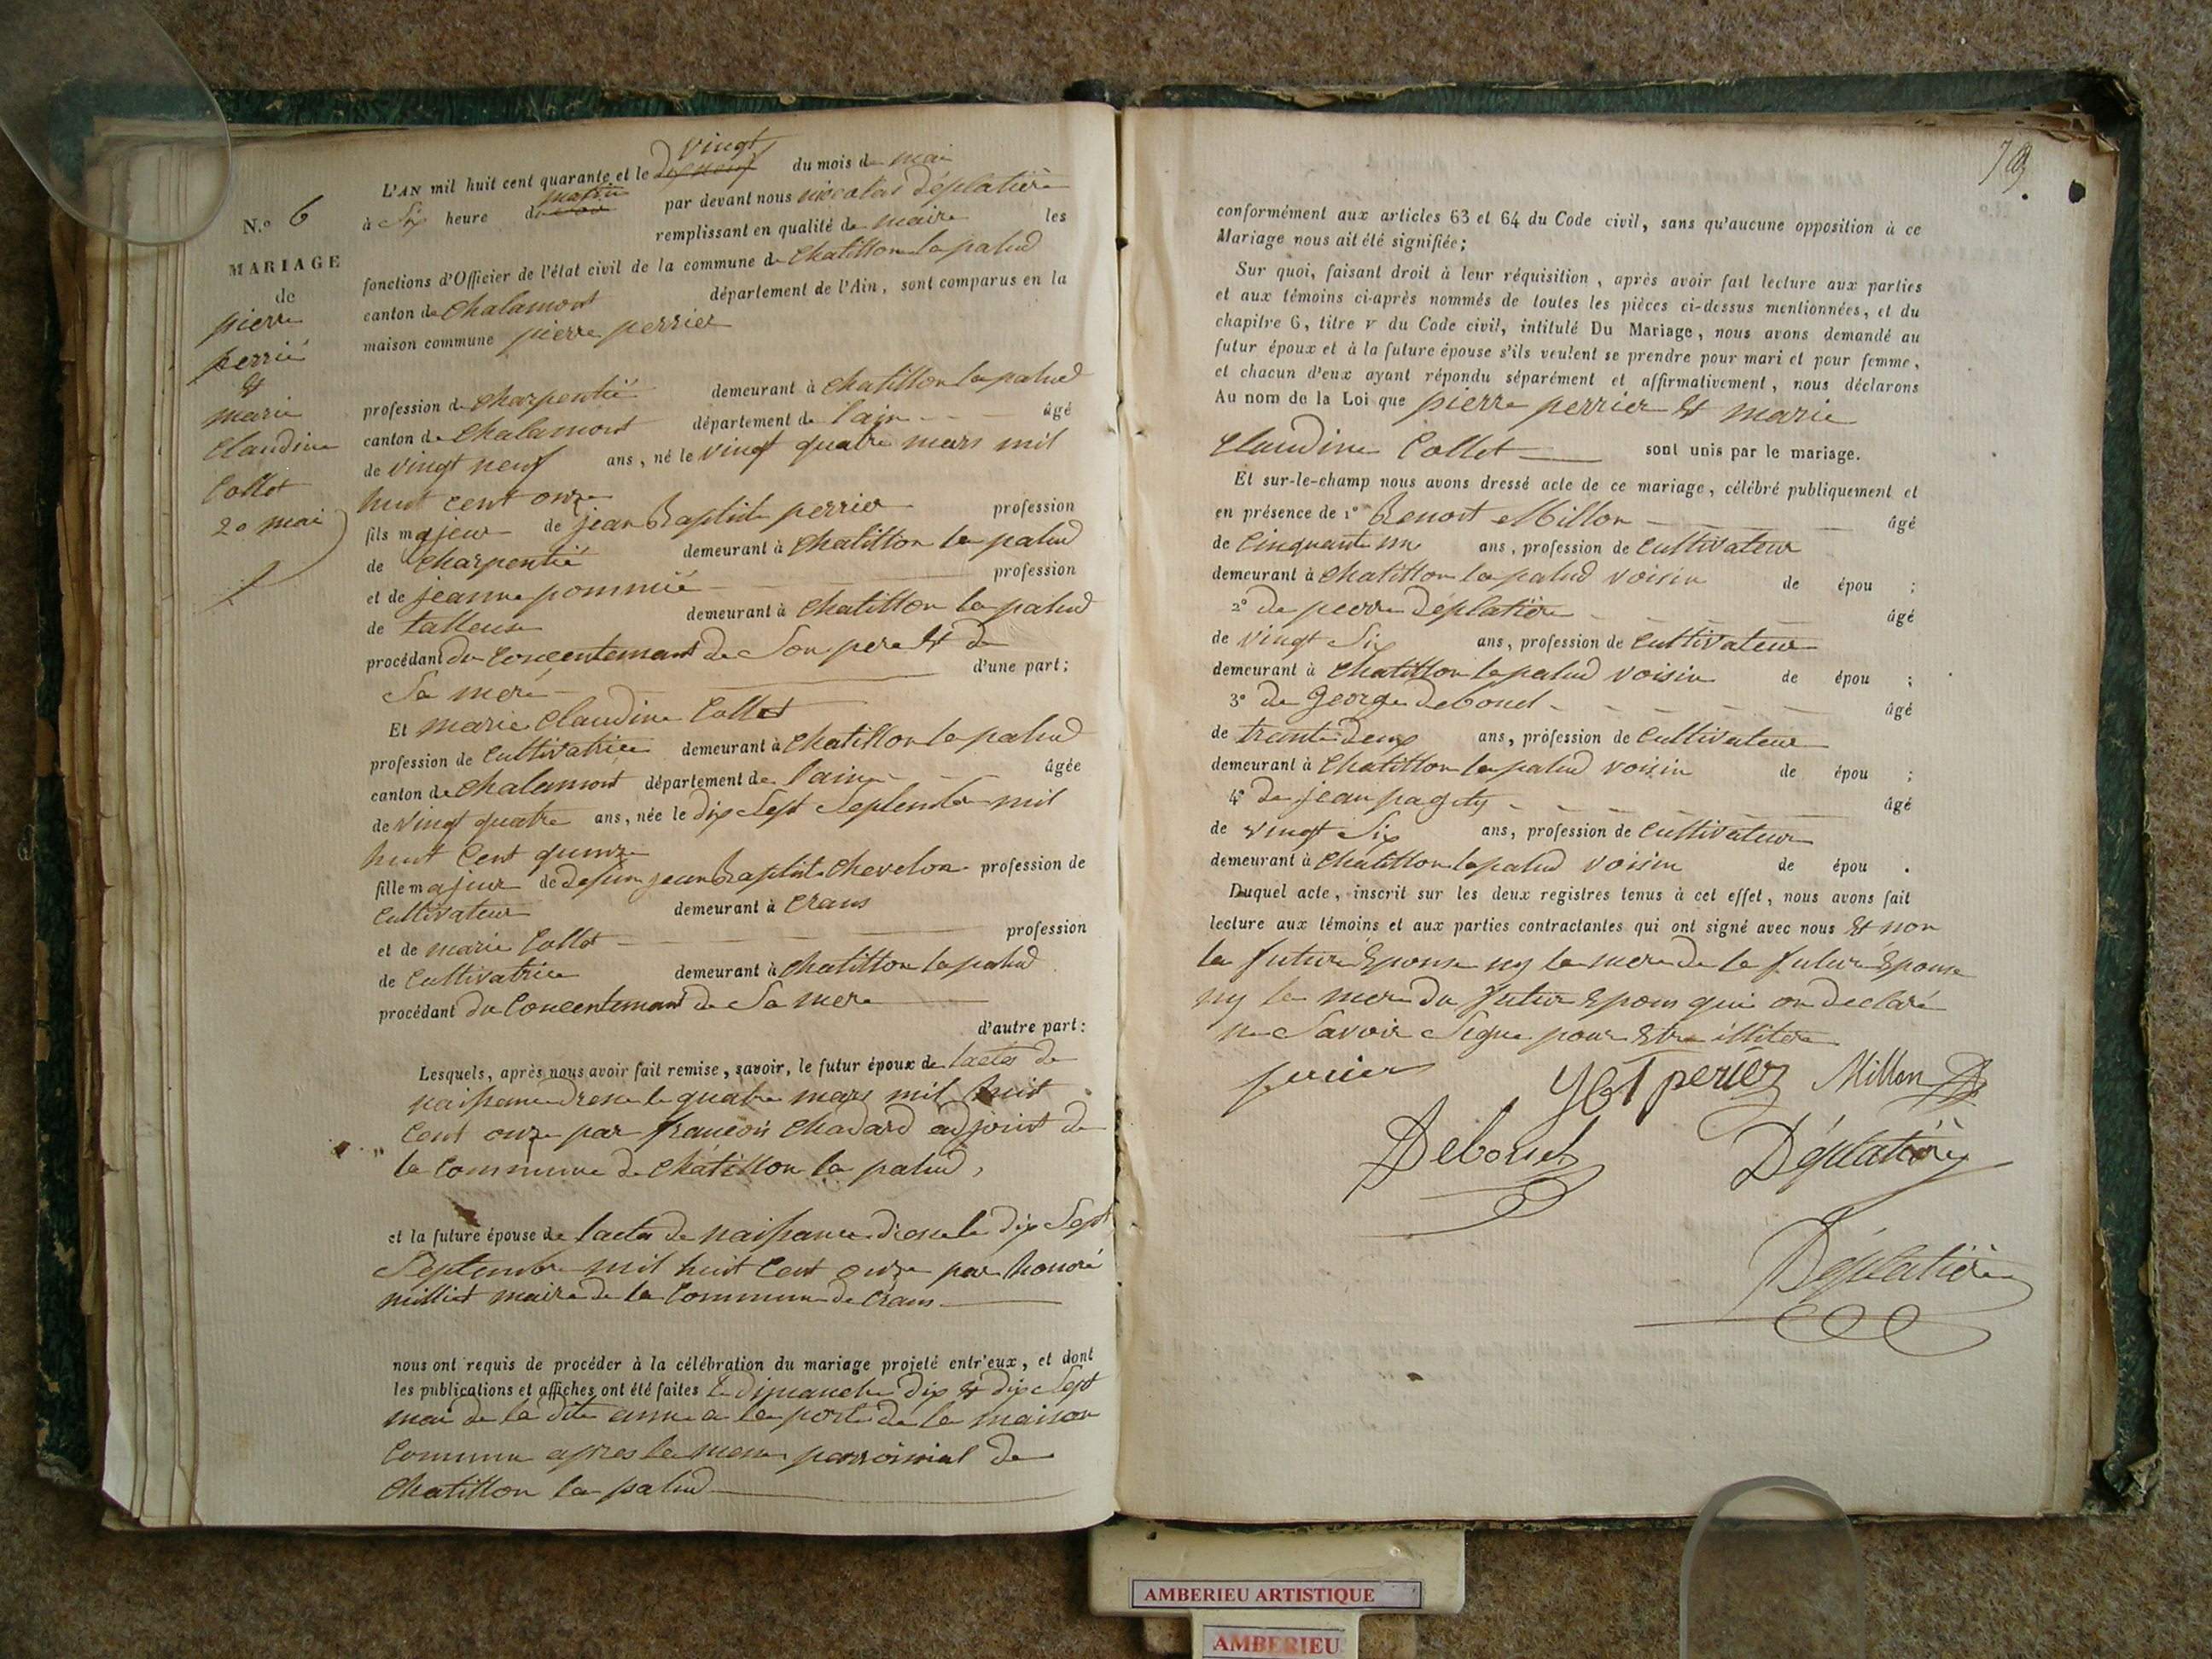 N.º 6
MARIAGE
de
pierre
perrié
et
marie
Claudine
Collet
20 mai
L'AN mil huit cent quarante et le dix neuf vingt du mois de mai
à Six heure du soir matin par devant nous nicolas déplatière
remplissant en qualité de maire les
fonctions d'Officier de l'état civil de la commune de Chatillon la palud
canton de Chalamont département de l'Ain, sont comparus en la
maison commune pierre perrier
profession de Charpentié demeurant à Chatillon la palud
canton de Chalamont département de l'ain âgé
de vingt neuf ans, né le vingt quatre mars mil
huit cent onze
fils majeur de jean Baptiste perrier profession
de Charpentié demeurant à Chatillon la palud
et de jeanne pommié profession
de talleuse demeurant à Chatillon la palud
procédant du Concentemant de Son pere et de
Sa meré d'une part;
Et marie Claudine Collet
profession de Cultivatrice demeurant à Chatillon la palud
canton de Chalamont département de l'ain âgée
de vingt quatre ans, née le dix Sept Septembre mil
huit Cent quinze
fille majeur de defun jean Baptiste Chevelon profession de
Cultivateur demeurant à Crans
et de marie Collet profession
de Cultivatrice demeurant à Chatillon la palud
procédant du Concentemant de Sa mere
d'autre part:
Lesquels, après nous avoir fait remise, savoir, le futur époux de lacte de
naissance le quatre mars mil huit
Cent onze par françois Chadard adjoint de
la Commune de Châtillon la palud,
et la future épouse de lacte de naissance le dix Sept
Septembre mil huit Cent onze par honoré
milliet maire de la Commune de Crans
nous ont requis de procéder à la célébration du mariage projeté entr'eux, et dont
les publications et affiches ont été faites le dimanche dix et dix Sept
mai de la dite anné a la porte de la maison
Commune apres la messe parroissial de
Chatillon la palud
conformément aux articles 63 et 64 du Code civil, sans qu'aucune opposition à ce
Mariage nous ait été signifiée;
Sur quoi, faisant droit à leur réquisition, après avoir fait lecture aux parties
et aux témoins ci-après nommés de toutes les pièces ci-dessus mentionnées, et du
chapitre 6, titre v du Code civil, intitulé Du Mariage, nous avons demandé au
futur époux et à la future épouse s'ils veulent se prendre pour mari et pour femme,
et chacun d'eux ayant répondu séparément et affirmativement, nous déclarons
Au nom de la Loi que pierre perrier et marie
Claudine Collet sont unis par le mariage.
Et sur-le-champ nous avons dressé acte de ce mariage, célébré publiquement et
en présence de 1º Benoit Millon âgé
de Cinquante un ans, profession de Cultivateur
demeurant à Chatillon la palud voisin de épou ;
2º de pierre déplatière âgé
de vingt Six ans, profession de Cultivateur
demeurant à Chatillon la palud voisin de épou ;
3º de George debouel âgé
de trente deux ans, profession de Cultivateur
demeurant à Chatillon la palud voisin de épou ;
4º de jean âgé
de vingt Six ans, profession de Cultivateur
demeurant à Chatillon la palud voisin de épou .
Duquel acte, inscrit sur les deux registres tenus à cet effet, nous avons fait
lecture aux témoins et aux parties contractantes qui ont signé avec nous et non
la future Epouse ny la mere de la future Epouse
ny la mere du futur Epoux qui on declaré
ne Savoir Signe pour Etre illitere
perrier Jbt periér Millon
Debouel Déplatière
Déplatière
AMBERIEU ARTISTIQUE
AMBERIEU